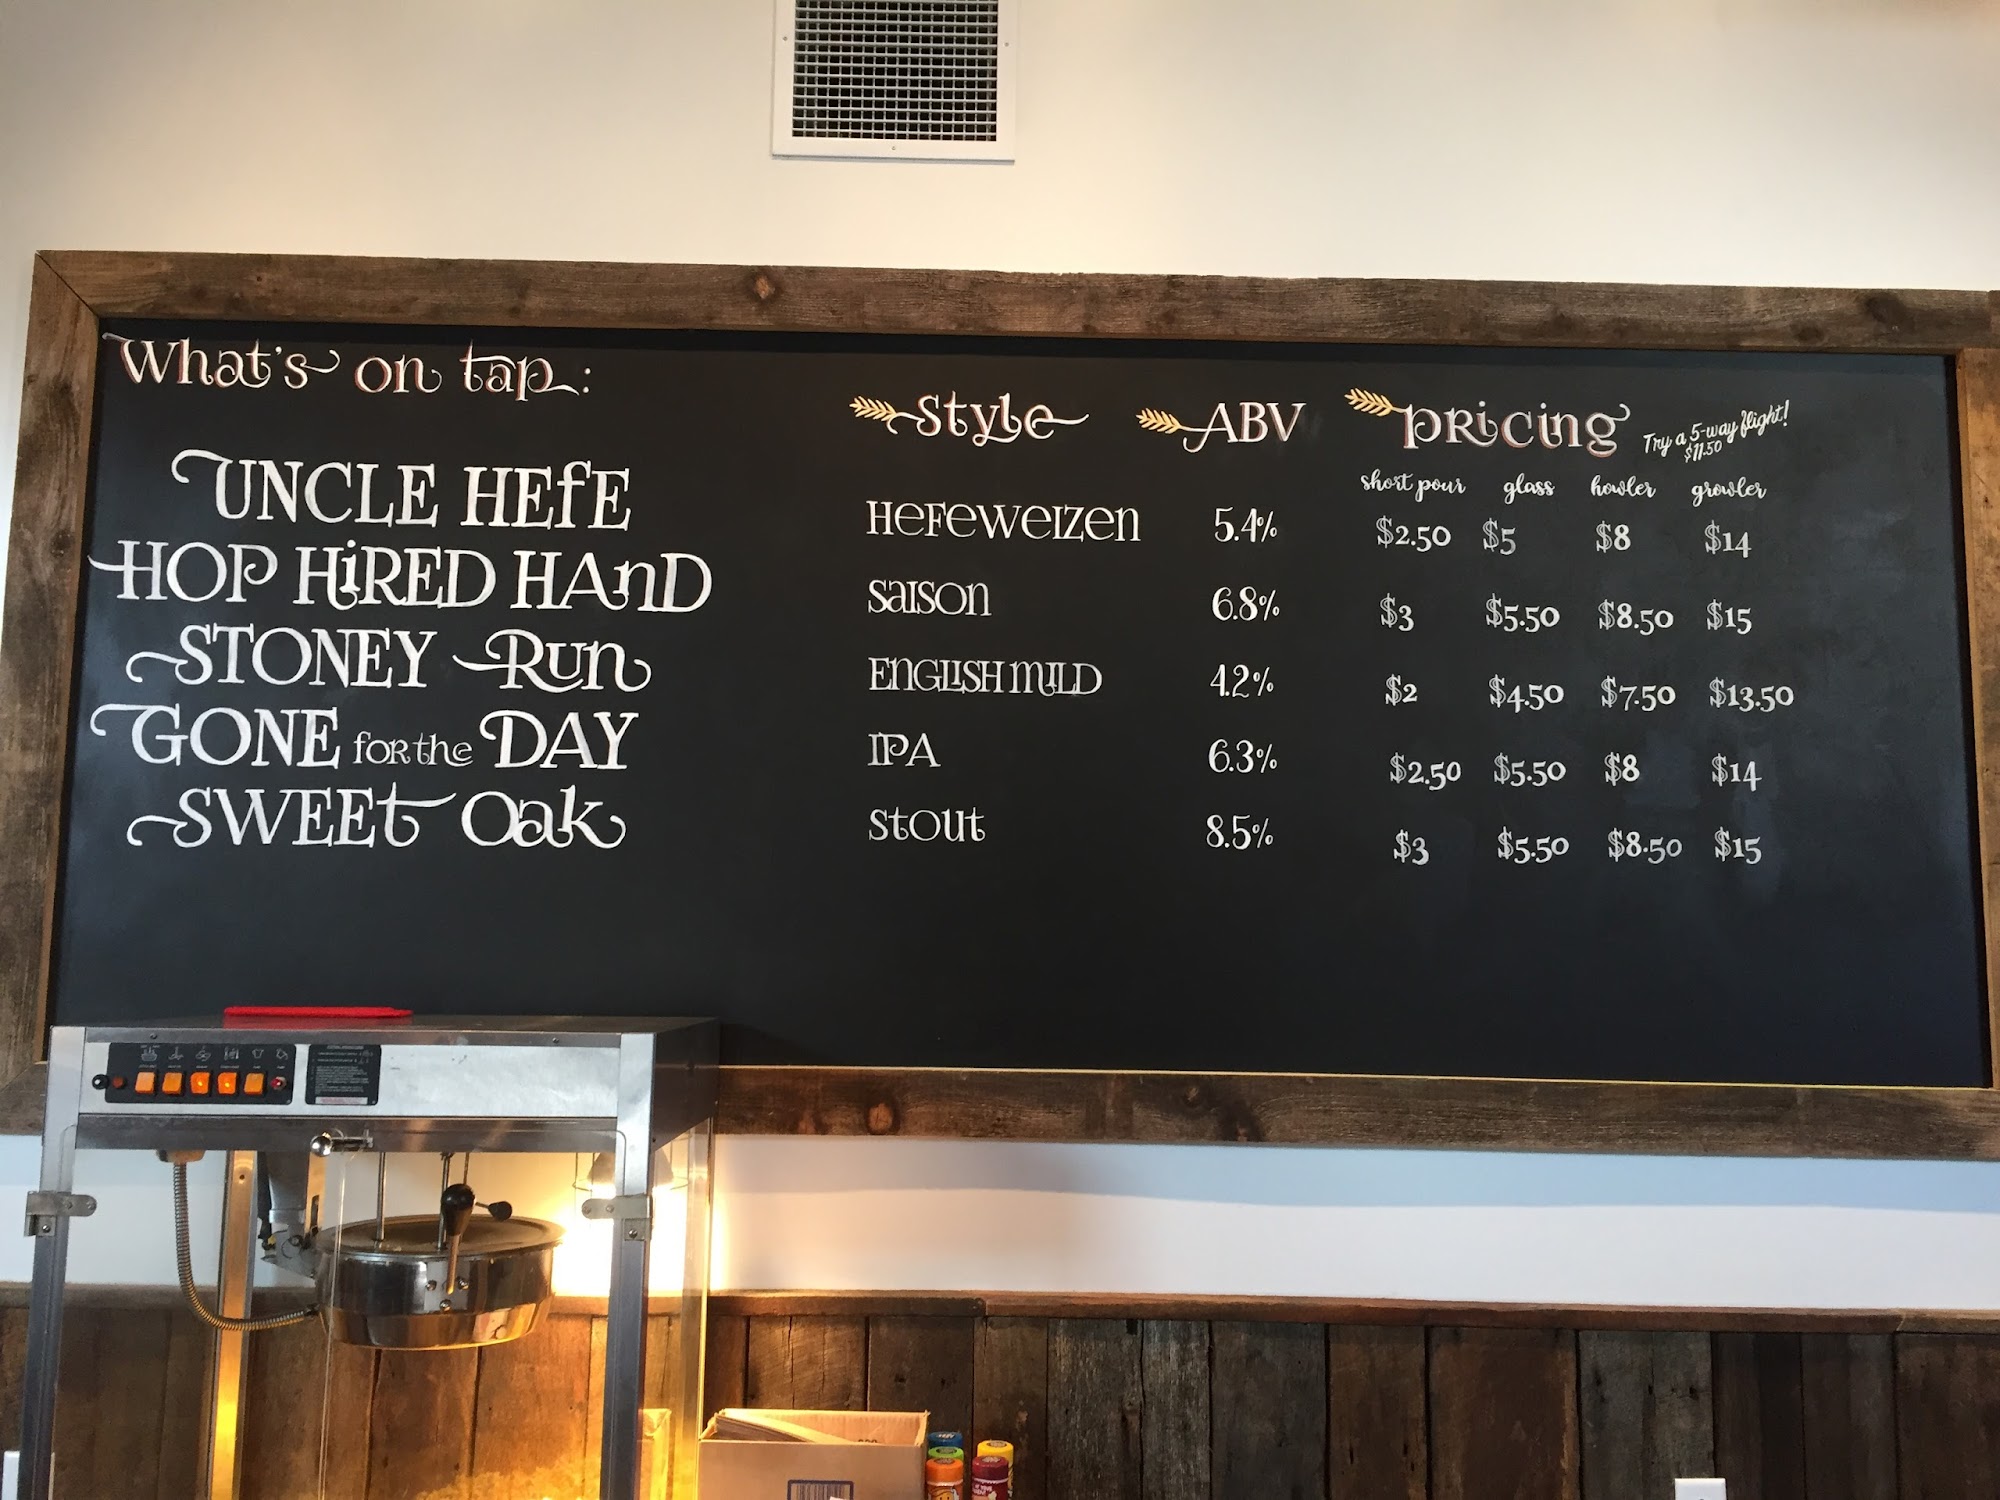 What's on tap:
Style ABV Pricing Try a 5-way flight!
$11.50
short pour glass howler growler
UNCLE HEfE HEFEWEIZEN 5.4% $2.50 $5 $8 $14
HOP HiRED HAnD SAISON 6.8% $3 $5.50 $8.50 $15
STONEY Run ENGLISH MILD 4.2% $2 $4.50 $7.50 $13.50
GONE for the DAY IPA 6.3% $2.50 $5.50 $8 $14
SWEEt Oak Stout 8.5% $3 $5.50 $8.50 $15